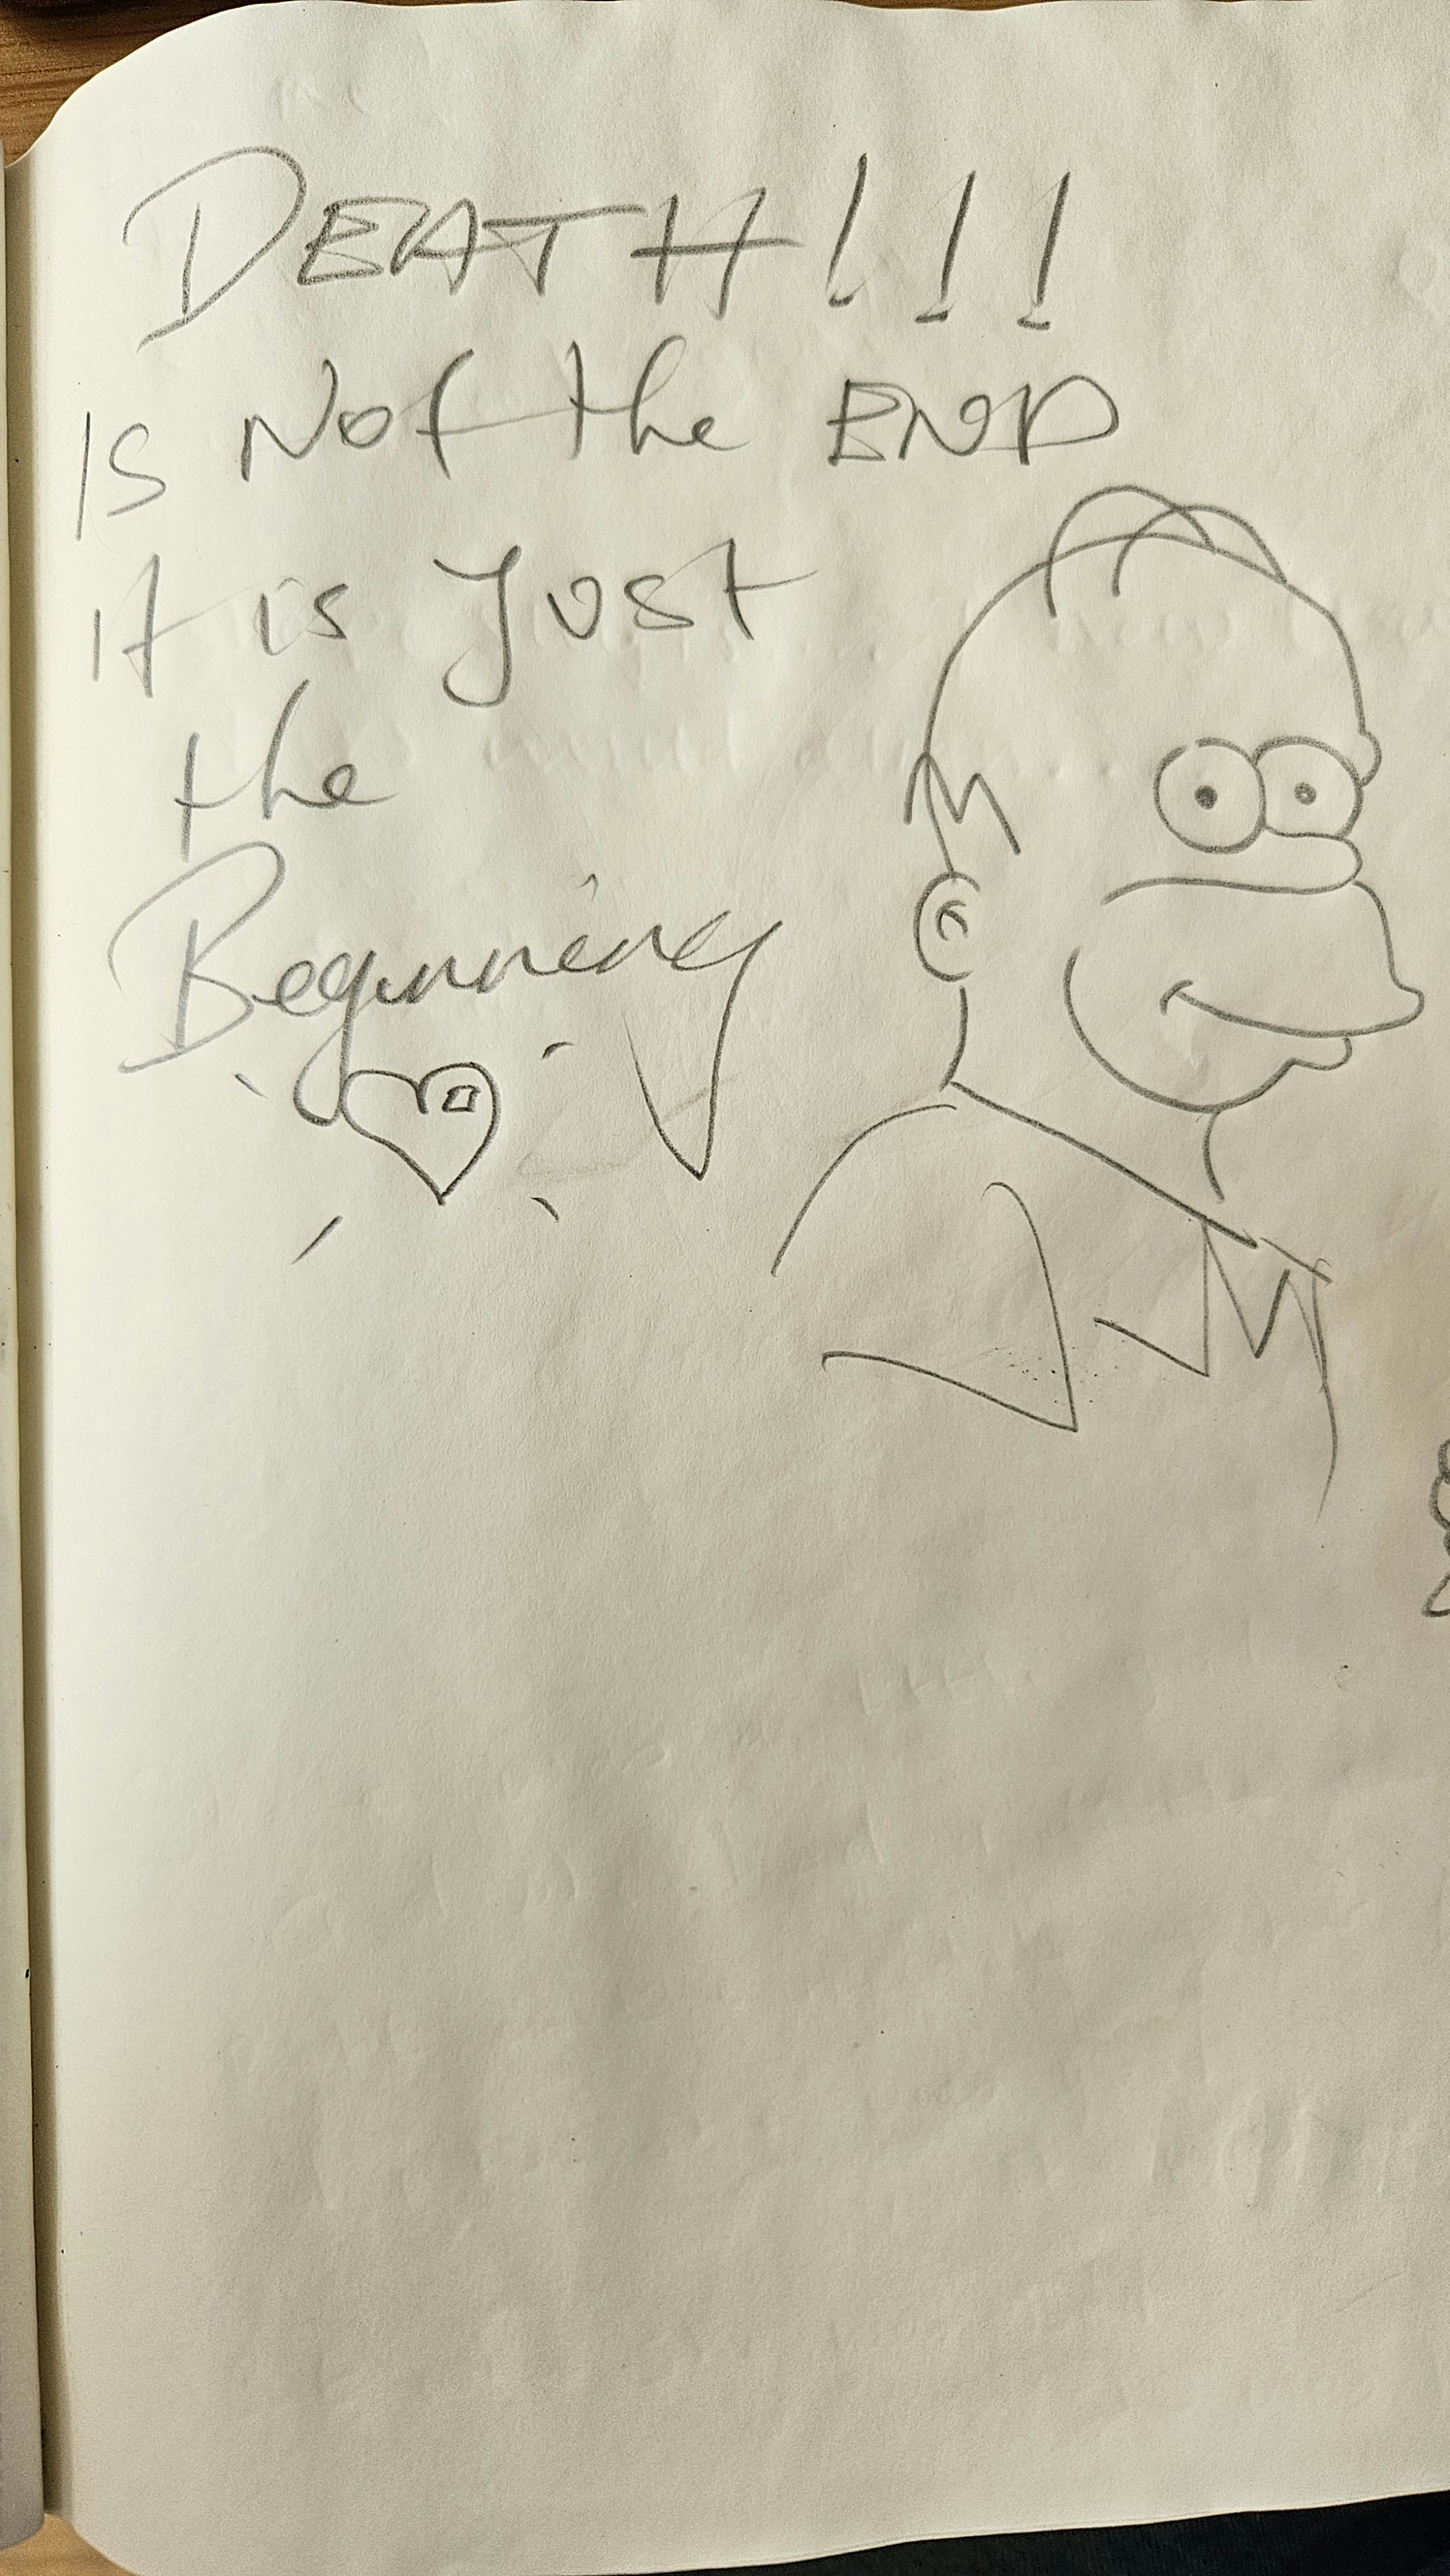 DEATH!!!
IS Not the END
it is Just
the
Beginning